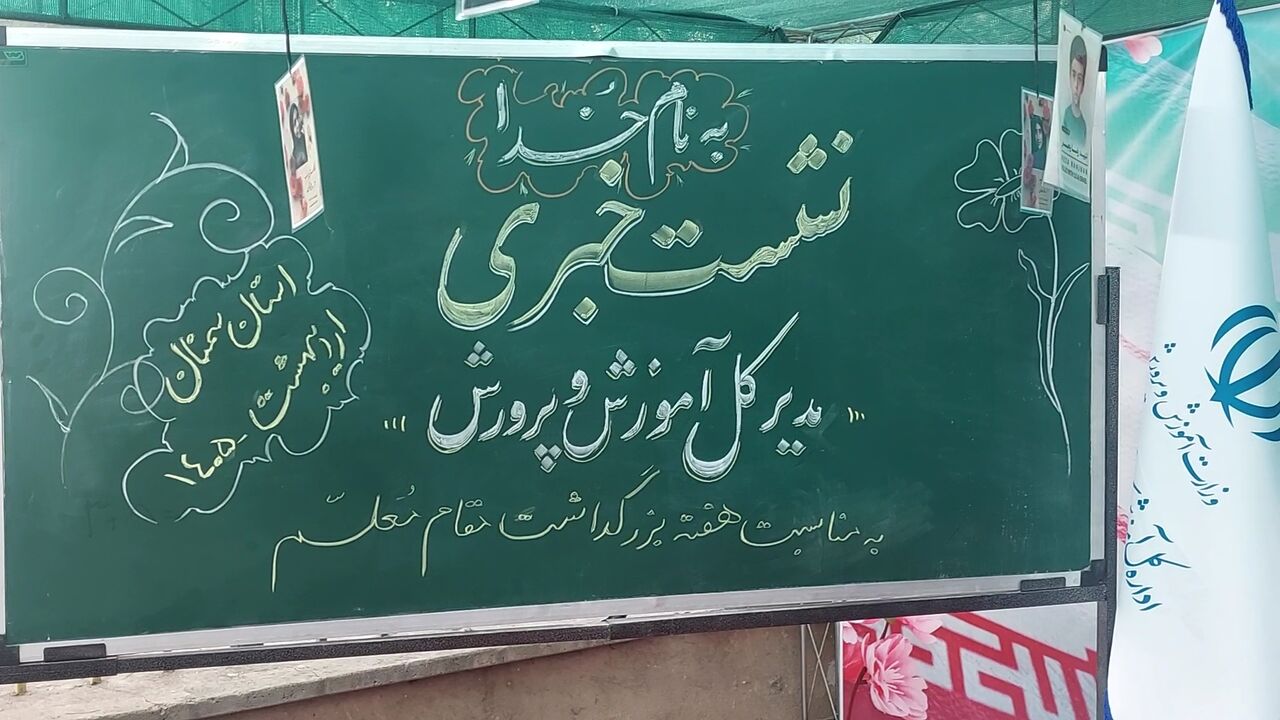 به نام خدا
نشست خبری
مدیر کل آموزش و پرورش
به مناسبت هفته بزرگداشت مقام معلّم
استان سمنان
اردیبهشت ۱۴۰۵
وزارت آموزش و پرورش
اداره کل آ